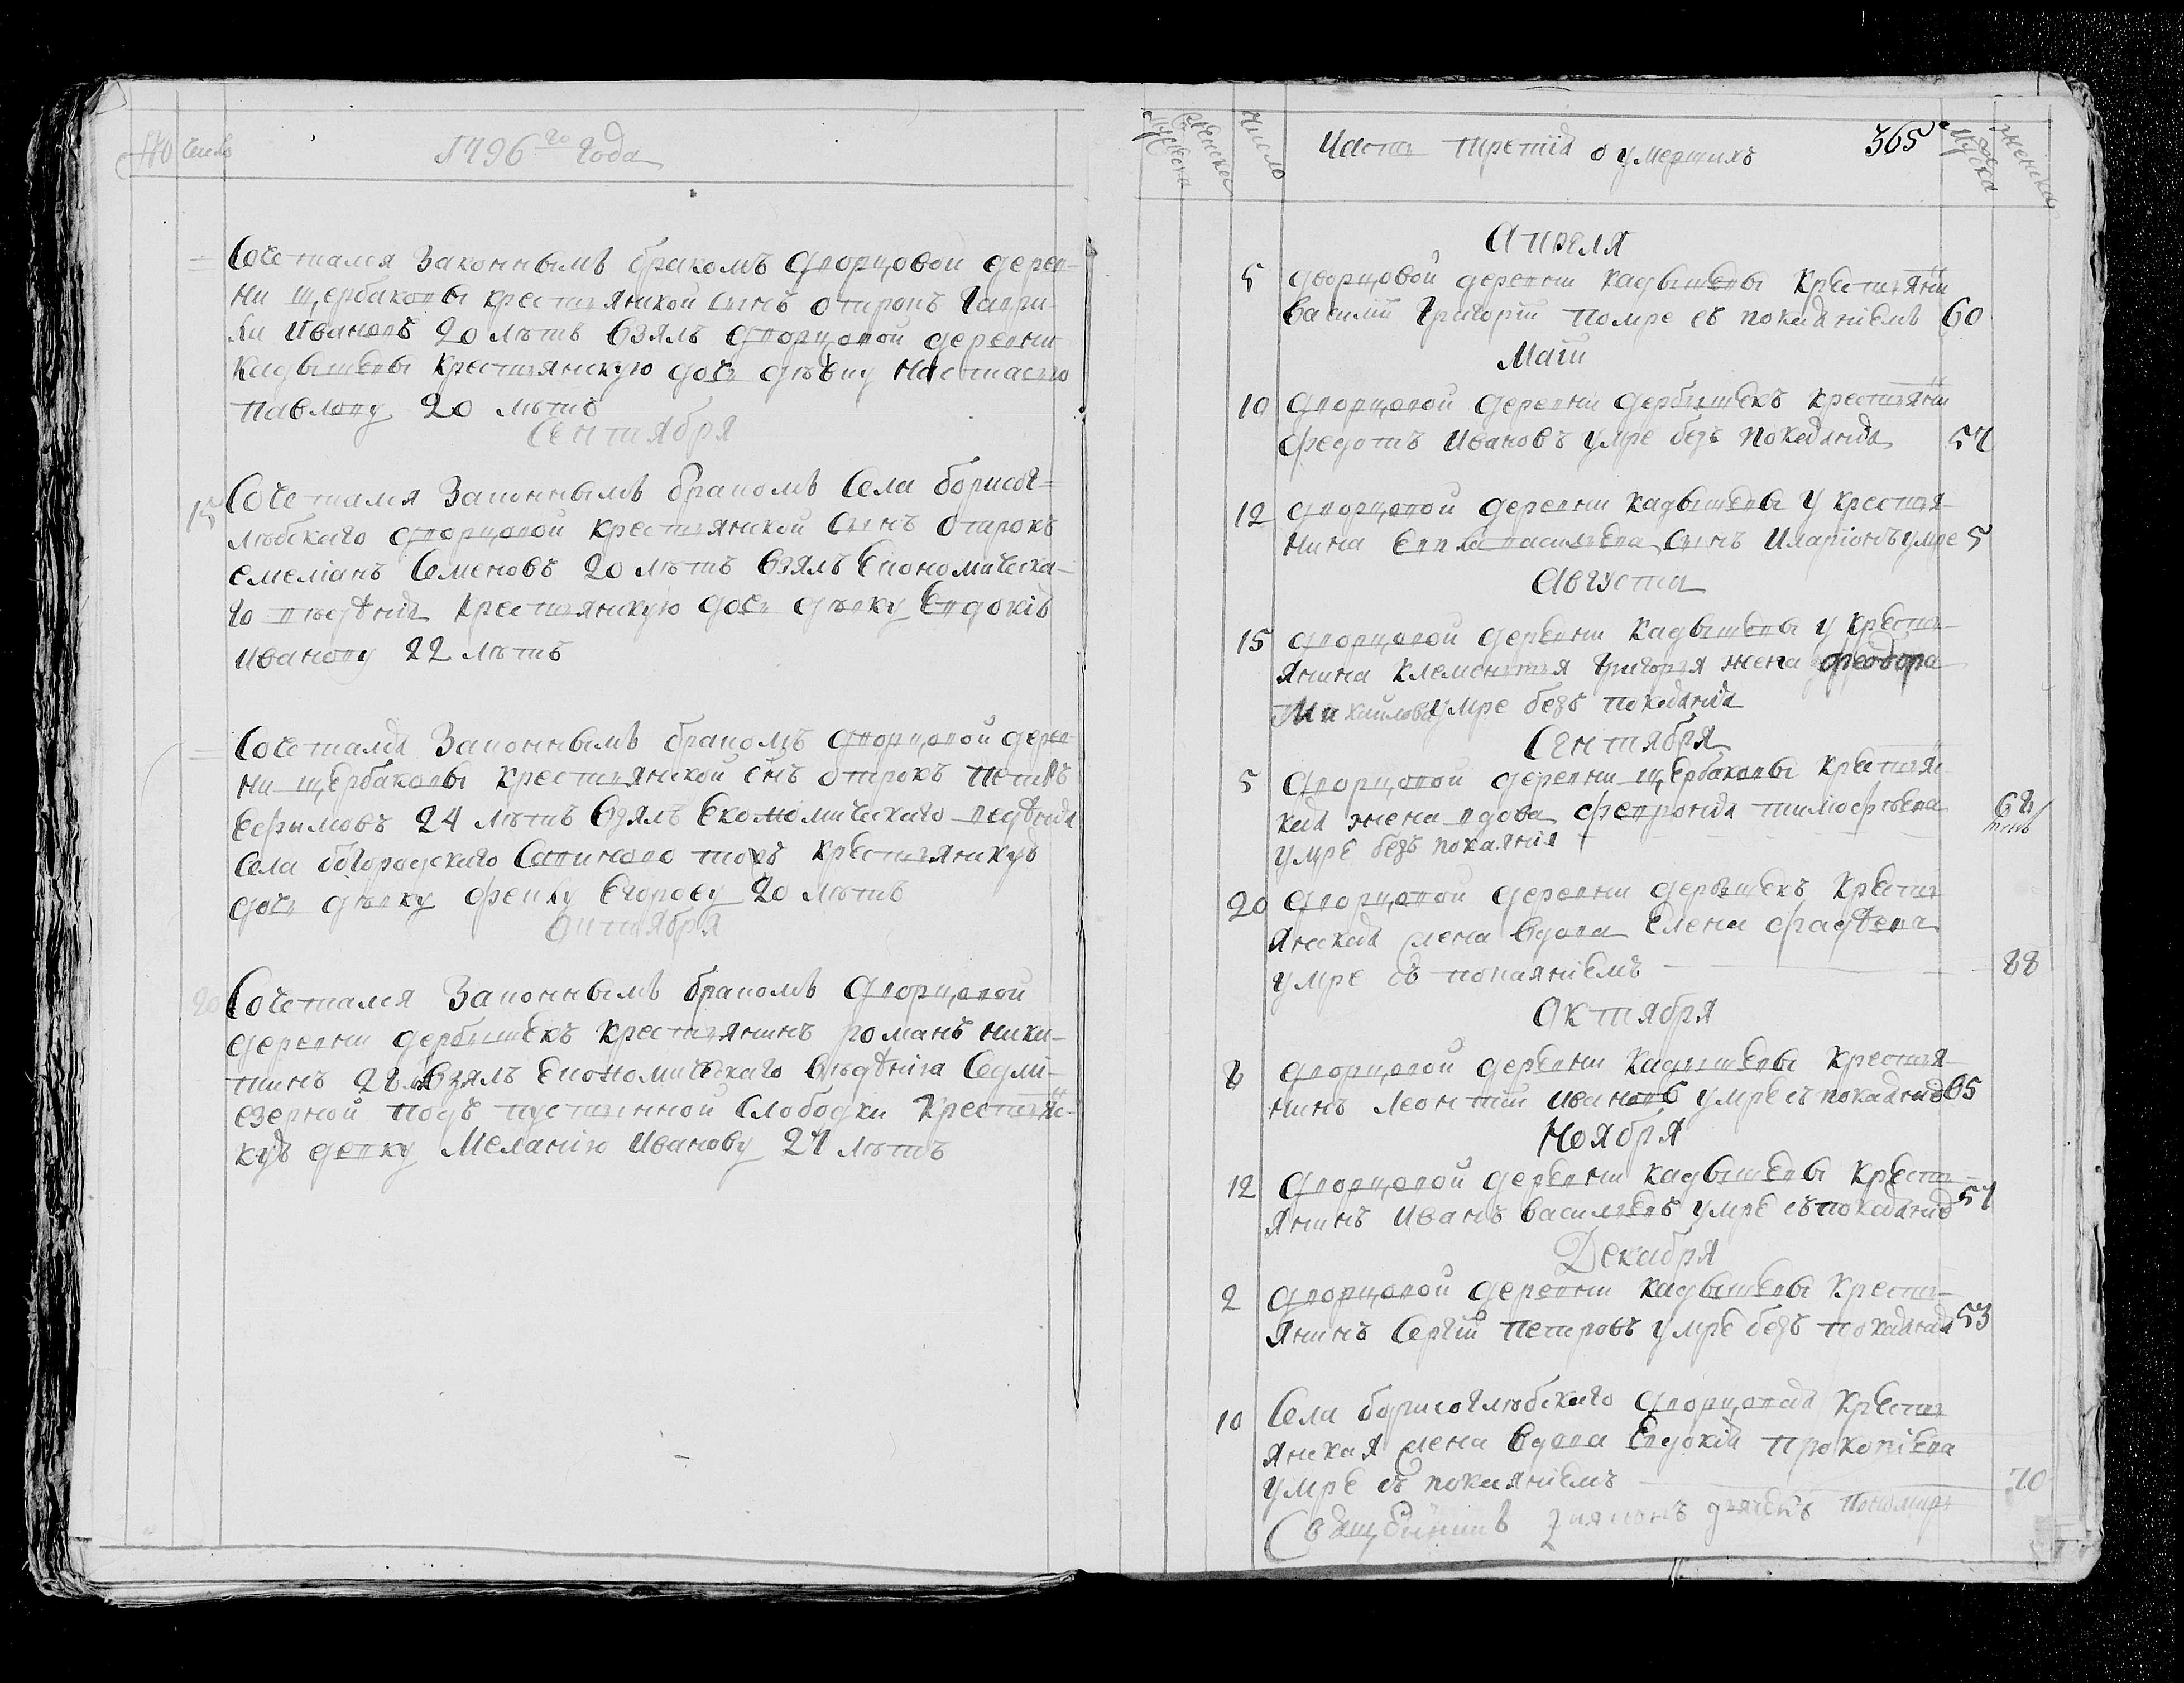 Число
1796го года
Сочетался законнымъ бракомъ дворцовой дерев-
ни щербаковы крестьянской сынъ отрокъ Гаври-
ли Ивановъ 20 лѣтъ взялъ дворцовой деревни
Кадышевы крестьянскую дочь дѣвку Настасю
Павлову 20 лѣтъ
Сентября
15 Сочетался законнымъ бракомъ Села борисог-
лѣбскаго дворцовой крестьянской сынъ отрокъ
емеліанъ Семеновъ 20 лѣтъ взялъ Економическа-
го вѣдѣнія крестьянскую дочь дѣвку Евдокію
Иванову 22 лѣтъ
Сочеталея законнымъ бракомъ дворцовой дерев-
ни щербаковы крестьянской снъ отрокъ Петръ
Ефимовъ 24 лѣтъ взялъ Економическаго ведѣнія
Села богородскаго тожъ крестьянскую
дочь дѣвку Егорову 20 лѣтъ
Октября
20 Сочетался законнымъ бракомъ дворцовой
деревни дербышекъ крестьянинъ романъ ники-
тинъ взялъ Економическаго вѣдѣнія Седми-
езерной подъ пустынной слободки крестьян-
кую девку Меланію Иванову 21 лѣтъ
Мужеска
Женска
Число
Часть третія о умершихъ
365
Мужеска
Женска
Апреля
5 дворцовой деревни кадышевы крестьянинъ
Василій Григорій помре съ покаяніемъ 60
Маія
10 дворцовой деревни дербышекъ крестьянинъ
федотъ Ивановъ умре безъ покаянія 57
12 дворцовой деревни кадышевы у крестья-
нина василева сынъ Иларіонъ умре 5
Августа
15 дворцовой деревни кадышевы у кресть-
янина Клементья Григорья жена феодора
Михайлова умре безъ покаянія
Сентября
5 дворцовой деревни щербаковы крестьян-
кая жена вдова февронія тимофѣева
умре безъ покаянія 68
20 дворцовой деревни дербышекъ кресть
янская жена вдова Елена фадѣева
умре съ покаяніемъ 88
Октября
8 дворцовой деревни Кадышевы крестья-
нинъ Леонтій Ивановъ умре съ покаяніе 65
Ноября
12 дворцовой деревни кадышевы кресть-
янинъ Иванъ васильевъ умре съ покаяніе 51
Декабря
2 дворцовой деревни кадышевы кресть-
янинъ Сергій Петровъ умре безъ покаянія 53
10 Села борисоглѣбскаго дворцовая кресть
янская жена вдова Евдокія прокопіева
умре съ покаяніемъ 70
Священникъ дьячекъ пономарь